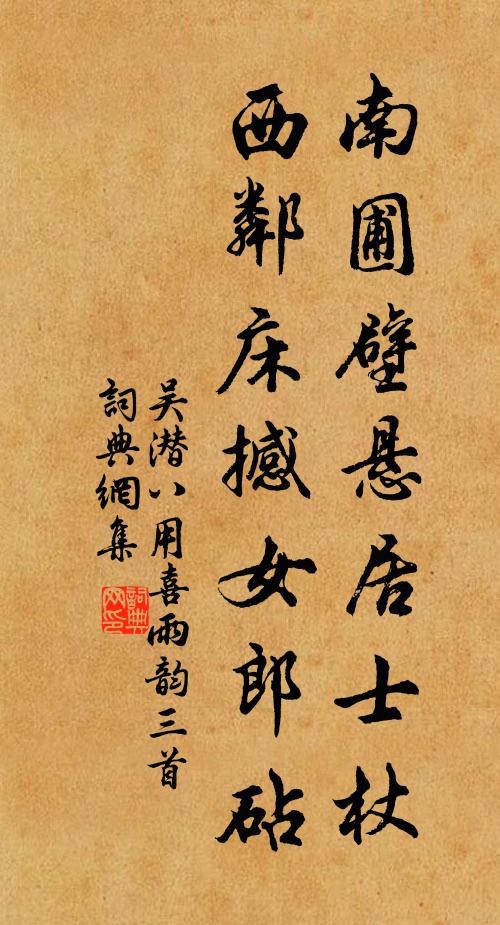 南圃壁悬居士杖
西鄰床撼女郎砧
吴潜八用喜雨韵三首
詞典網集
詞典网印